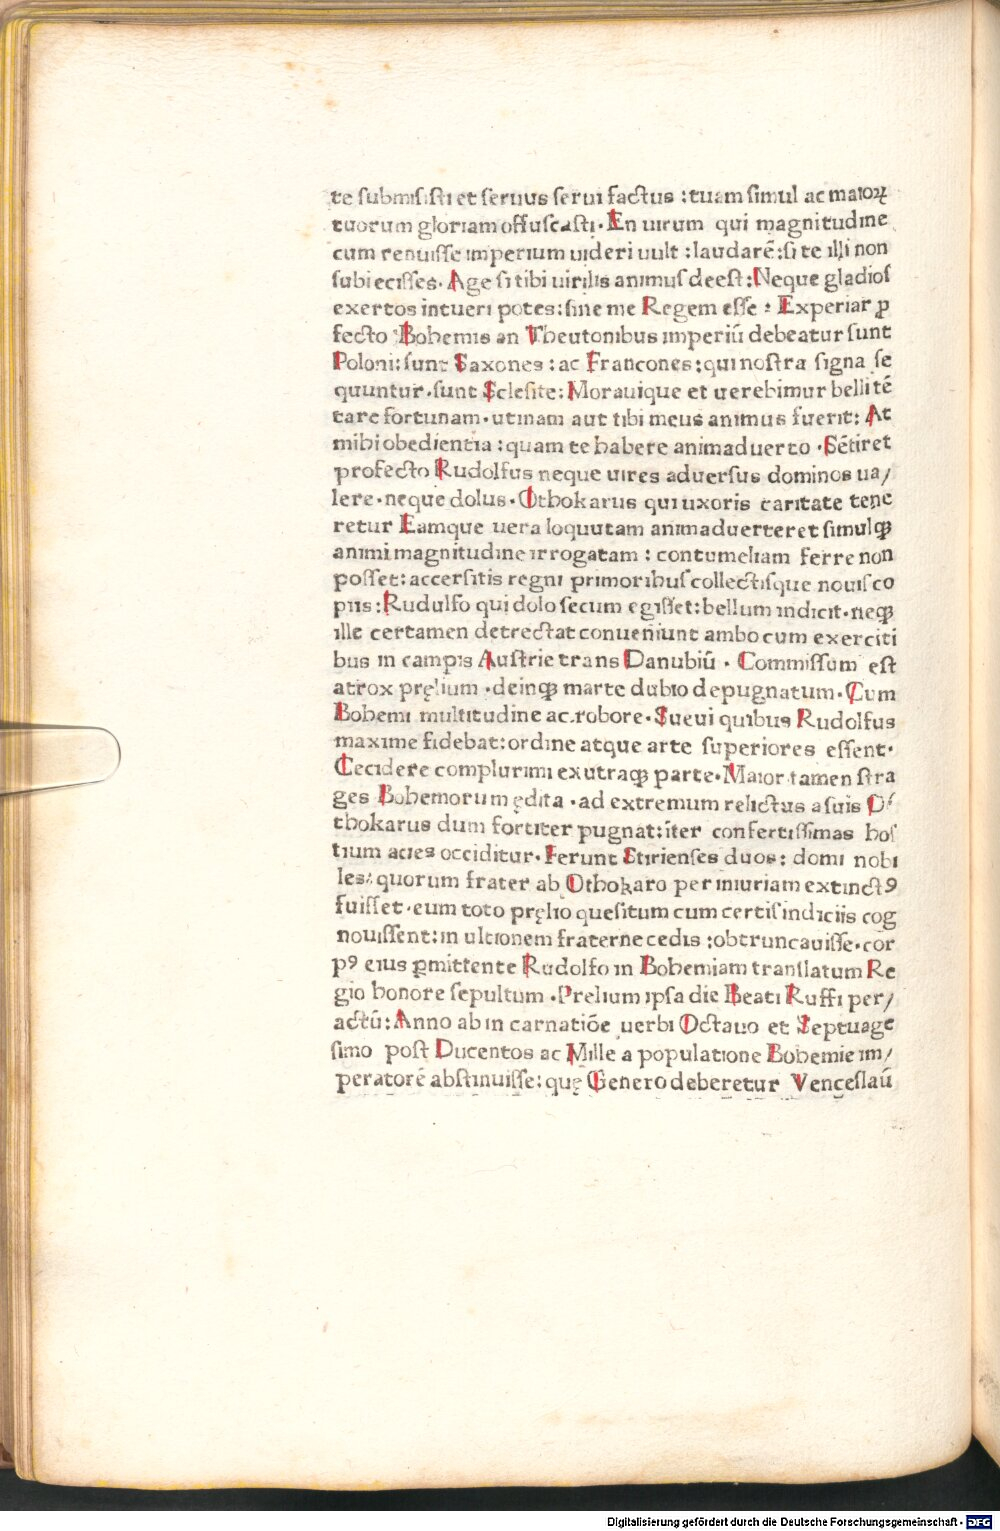 te submisisti et seruus serui factus : tuam simul ac maioꝝ
tuorum gloriam offuscasti · En uirum qui magnitudine
cum renuisse imperium uideri uult : laudarē : si te illi non
subiecisses · Age si tibi uirilis animus deest : Neque gladios
exertos intueri potes : sine me Regem esse : Experiar ꝓ
fecto Bohemis an Theutonibus imperiū debeatur sunt
Poloni : sunt Saxones : ac Francones : qui nostra signa se
quuntur · sunt Sclesite : Morauique et uerebimur belli tē
tare fortunam · utinam aut tibi meus animus fuerit : At
mihi obedientia : quam te habere animaduerto · Sētiret
profecto Rudolfus neque uires aduersus dominos ua/
lere · neque dolus · Othokarus qui uxoris caritate tene
retur Eamque uera loquutam animaduerteret simulqꝫ
animi magnitudine irrogatam : contumeliam ferre non
posset : accersitis regni primoribus collectisque nouis co
piis : Rudulfo qui dolo secum egisset : bellum indicit · neqꝫ
ille certamen detrectat conueniunt ambo cum exerciti
bus in campis Austrie trans Danubiū · Commissum est
atrox pręlium · deinqꝫ marte dubio depugnatum · Cum
Bohemi multitudine ac robore · Sueui quibus Rudolfus
maxime fidebat : ordine atque arte superiores essent ·
Cecidere complurimi ex utraqꝫ parte · Maior tamen stra
ges Bohemorum ędita · ad extremum relictus a suis O
thokarus dum fortiter pugnat : īter confertissimas hos
tium acies occiditur · Ferunt Stirienses duos : domi nobi
les : quorum frater ab Othokaro per iniuriam extinctꝰ
fuisset · eum toto pręlio quesitum cum certis indiciis cog
nouissent : in ultionem fraterne cedis : obtruncauisse · cor
pꝰ eius ꝑmittente Rudolfo in Bohemiam translatum Re
gio honore sepultum · Prelium ipsa die Beati Ruffi per/
actū : Anno ab in carnatiōe uerbi Octauo et Septuage
simo post Ducentos ac Mille a populatione Bohemie im/
peratorē abstinuisse : quę Genero deberetur Venceslaū
Digitalisierung gefördert durch die Deutsche Forschungsgemeinschaft - DFG